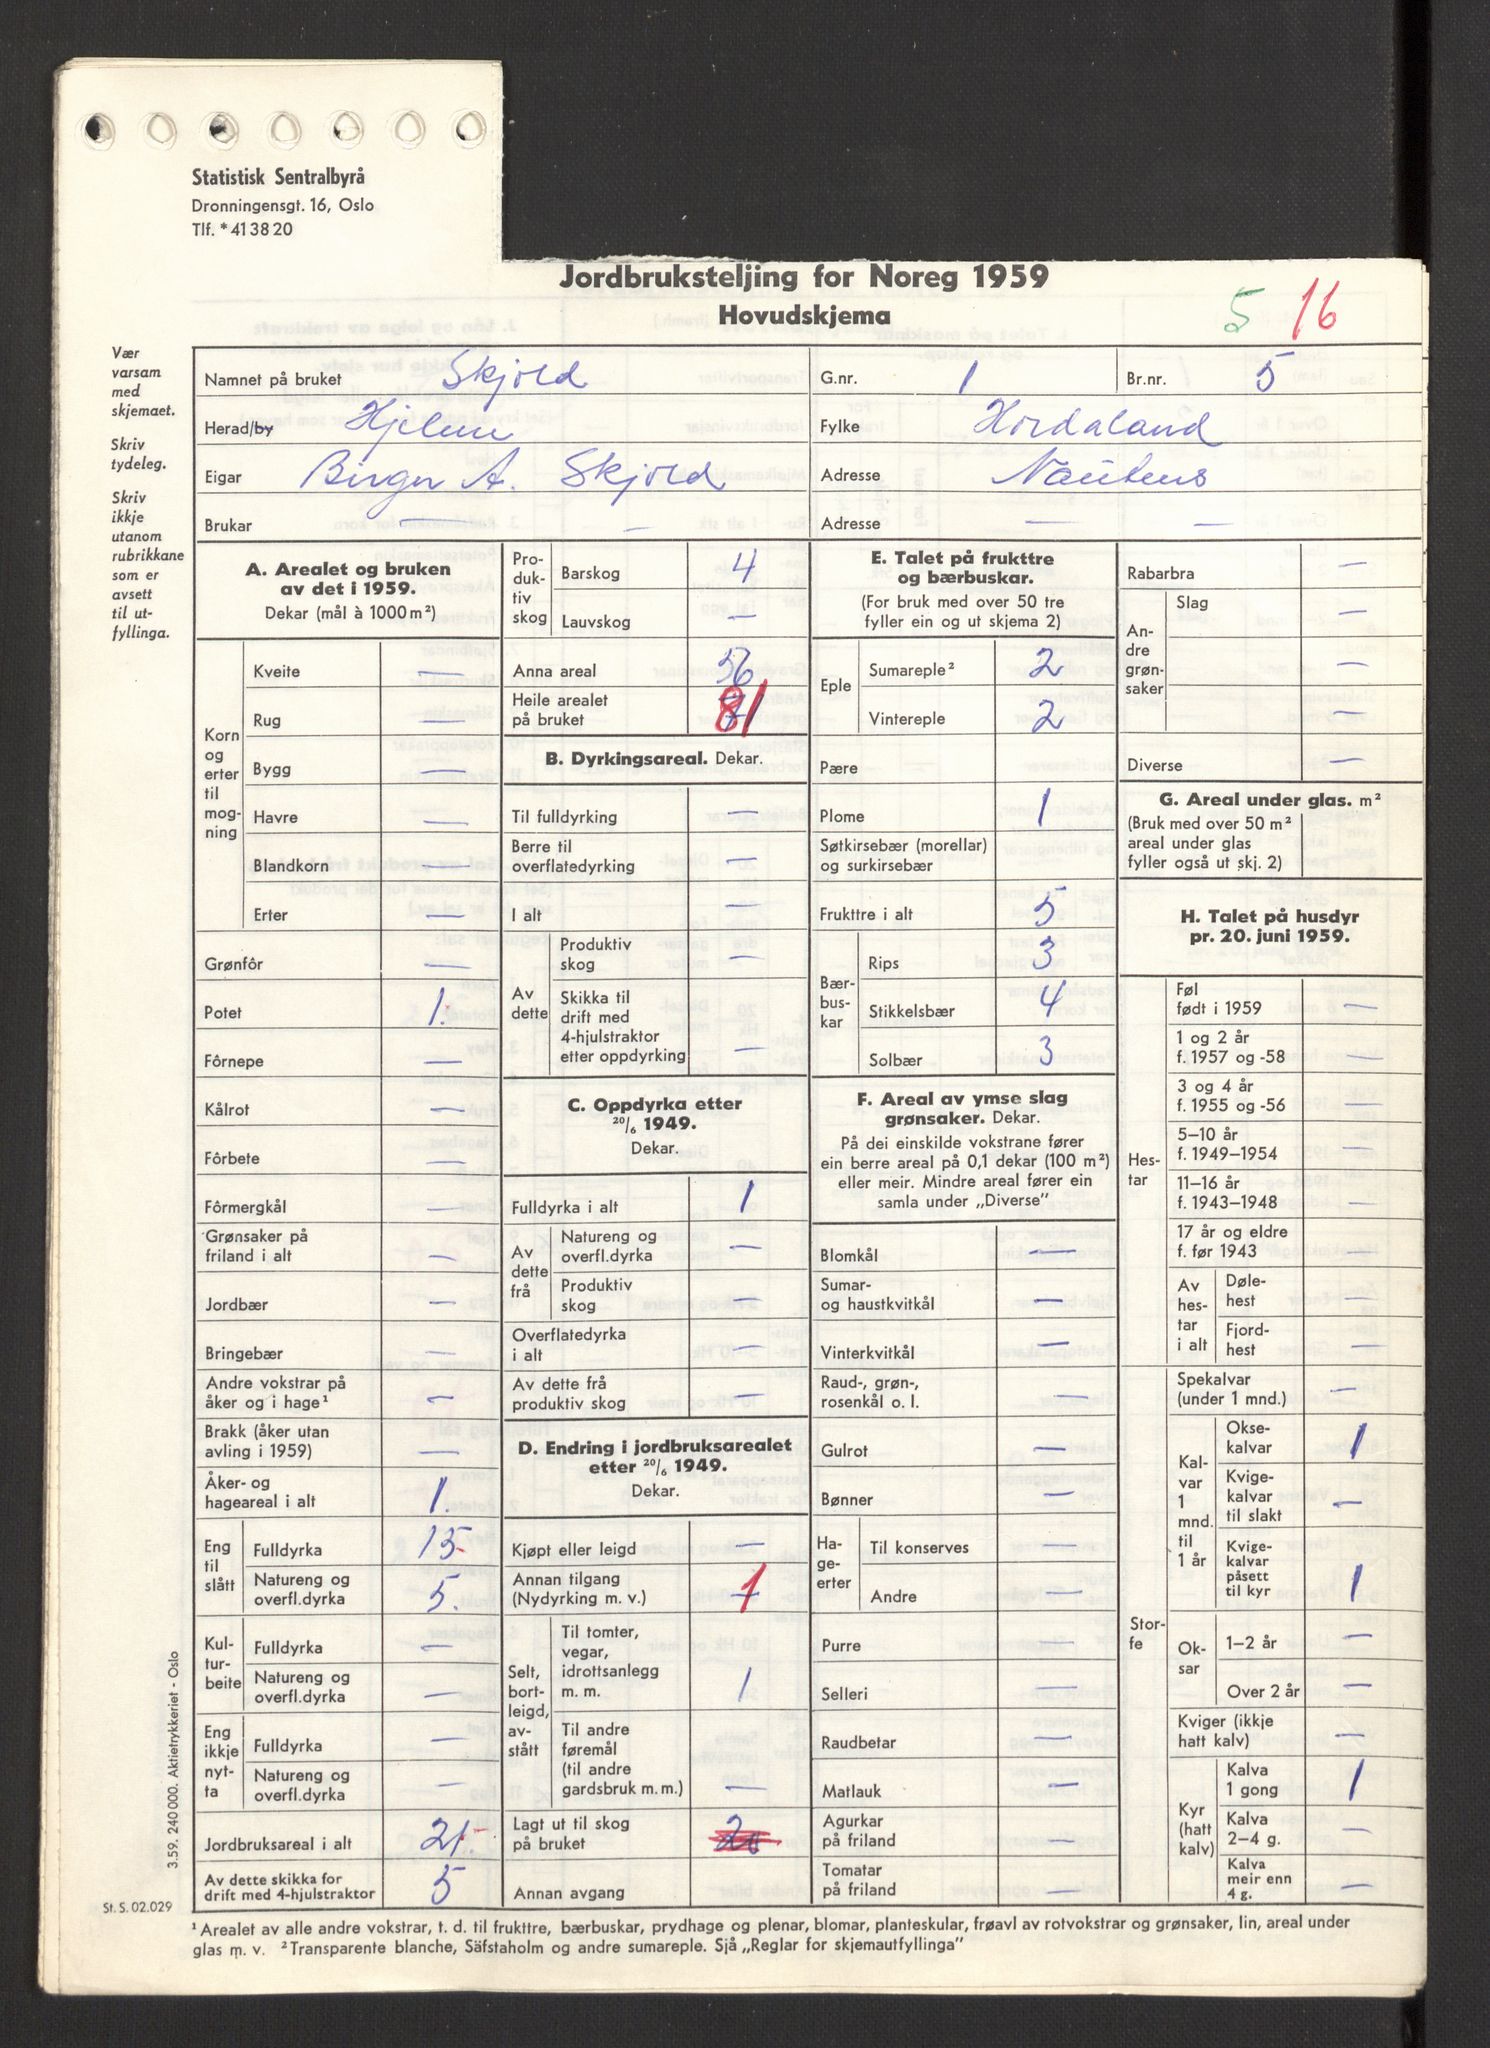 Statistisk Sentralbyrå
Dronningensgt. 16, Oslo
Tlf. *41 38 20
Jordbruksteljing for Noreg 1959
Hovudskjema
5 16
Vær varsam med skjemaet.
Skriv tydeleg.
Skriv ikkje utanom rubrikkane som er avsett til ut-fyllinga.
Namnet på bruket Skjold G.nr. 1 Br.nr. 5
Herad/by Hjelme Fylke Hordaland
Eigar Birger A. Skjold Adresse Nautnes
Brukar — — Adresse — —
A. Arealet og bruken av det i 1959.
Dekar (mål à 1000 m²)
Korn og erter til mog-ning
Kveite —
Rug —
Bygg —
Havre —
Blandkorn —
Erter —
Grønfôr —
Potet 1.
Fôrnepe —
Kålrot —
Fôrbete —
Fôrmergkål —
Grønsaker på friland i alt —
Jordbær —
Bringebær —
Andre vokstrar på åker og i hage¹ —
Brakk (åker utan avling i 1959) —
Åker- og hageareal i alt 1.
Eng til slått
Fulldyrka 15
Natureng og overfl.dyrka 5.
Kul-tur-beite
Fulldyrka —
Natureng og overfl.dyrka —
Eng ikkje nyt-ta
Fulldyrka —
Natureng og overfl.dyrka —
Jordbruksareal i alt 21.
Av dette skikka for drift med 4-hjulstraktor 5
Pro-duk-tiv skog
Barskog 4
Lauvskog —
Anna areal 56
Heile arealet på bruket 81
B. Dyrkingsareal. Dekar.
Til fulldyrking —
Berre til overflatedyrking —
I alt —
Av dette
Produktiv skog —
Skikka til drift med 4-hjulstraktor etter oppdyrking —
C. Oppdyrka etter 20/6 1949.
Dekar.
Fulldyrka i alt 1
Av dette frå
Natureng og overfl.dyrka —
Produktiv skog —
Overflatedyrka i alt —
Av dette frå produktiv skog —
D. Endring i jordbruksarealet etter 20/6 1949.
Dekar.
Kjøpt eller leigd —
Annan tilgang (Nydyrking m. v.) 1
Selt, bort-leigd, av-stått
Til tomter, vegar, idrottsanlegg m. m. 1
Til andre føremål (til andre gardsbruk m. m.) —
Lagt ut til skog på bruket
Annan avgang —
E. Talet på frukttre og bærbuskar.
(For bruk med over 50 tre fyller ein og ut skjema 2)
Eple
Sumareple² 2
Vintereple 2
Pære
Plome 1
Søtkirsebær (morellar) og surkirsebær
Frukttre i alt 5
Bær-bus-kar
Rips 3
Stikkelsbær 4
Solbær 3
F. Areal av ymse slag grønsaker. Dekar.
På dei einskilde vokstrane fører ein berre areal på 0,1 dekar (100 m²) eller meir. Mindre areal fører ein samla under „Diverse”
Blomkål —
Sumar- og haustkvitkål —
Vinterkvitkål —
Raud-, grøn-, rosenkål o. l. —
Gulrot —
Bønner —
Ha-ge-erter
Til konserves —
Andre —
Purre —
Selleri —
Raudbetar —
Matlauk —
Agurkar på friland —
Tomatar på friland —
Rabarbra —
An-dre grøn-saker
Slag —
—
—
Diverse —
G. Areal under glas. m²
(Bruk med over 50 m² areal under glas fyller også ut skj. 2)
H. Talet på husdyr pr. 20. juni 1959.
Hes-tar
Føl født i 1959 —
1 og 2 år f. 1957 og -58 —
3 og 4 år f. 1955 og -56 —
5–10 år f. 1949–1954 —
11–16 år f. 1943–1948 —
17 år og eldre f. før 1943 —
Av hes-tar i alt
Døle-hest —
Fjord-hest —
Stor-fe
Spekalvar (under 1 mnd.) —
Kal-var 1 mnd. til 1 år
Okse-kalvar 1
Kvige-kalvar til slakt —
Kvige-kalvar påsett til kyr 1
Ok-sar
1–2 år —
Over 2 år —
Kviger (ikkje hatt kalv) —
Kyr (hatt kalv)
Kalva 1 gong 1
Kalva 2–4 g. —
Kalva meir enn 4 g. —
3.59. 240 000. Aktietrykkeriet - Oslo
St. S. 02.029
¹ Arealet av alle andre vokstrar, t. d. til frukttre, bærbuskar, prydhage og plenar, blomar, planteskular, frøavl av rotvokstrar og grønsaker, lin, areal under
glas m. v. ² Transparente blanche, Säfstaholm og andre sumareple. Sjå „Reglar for skjemautfyllinga”